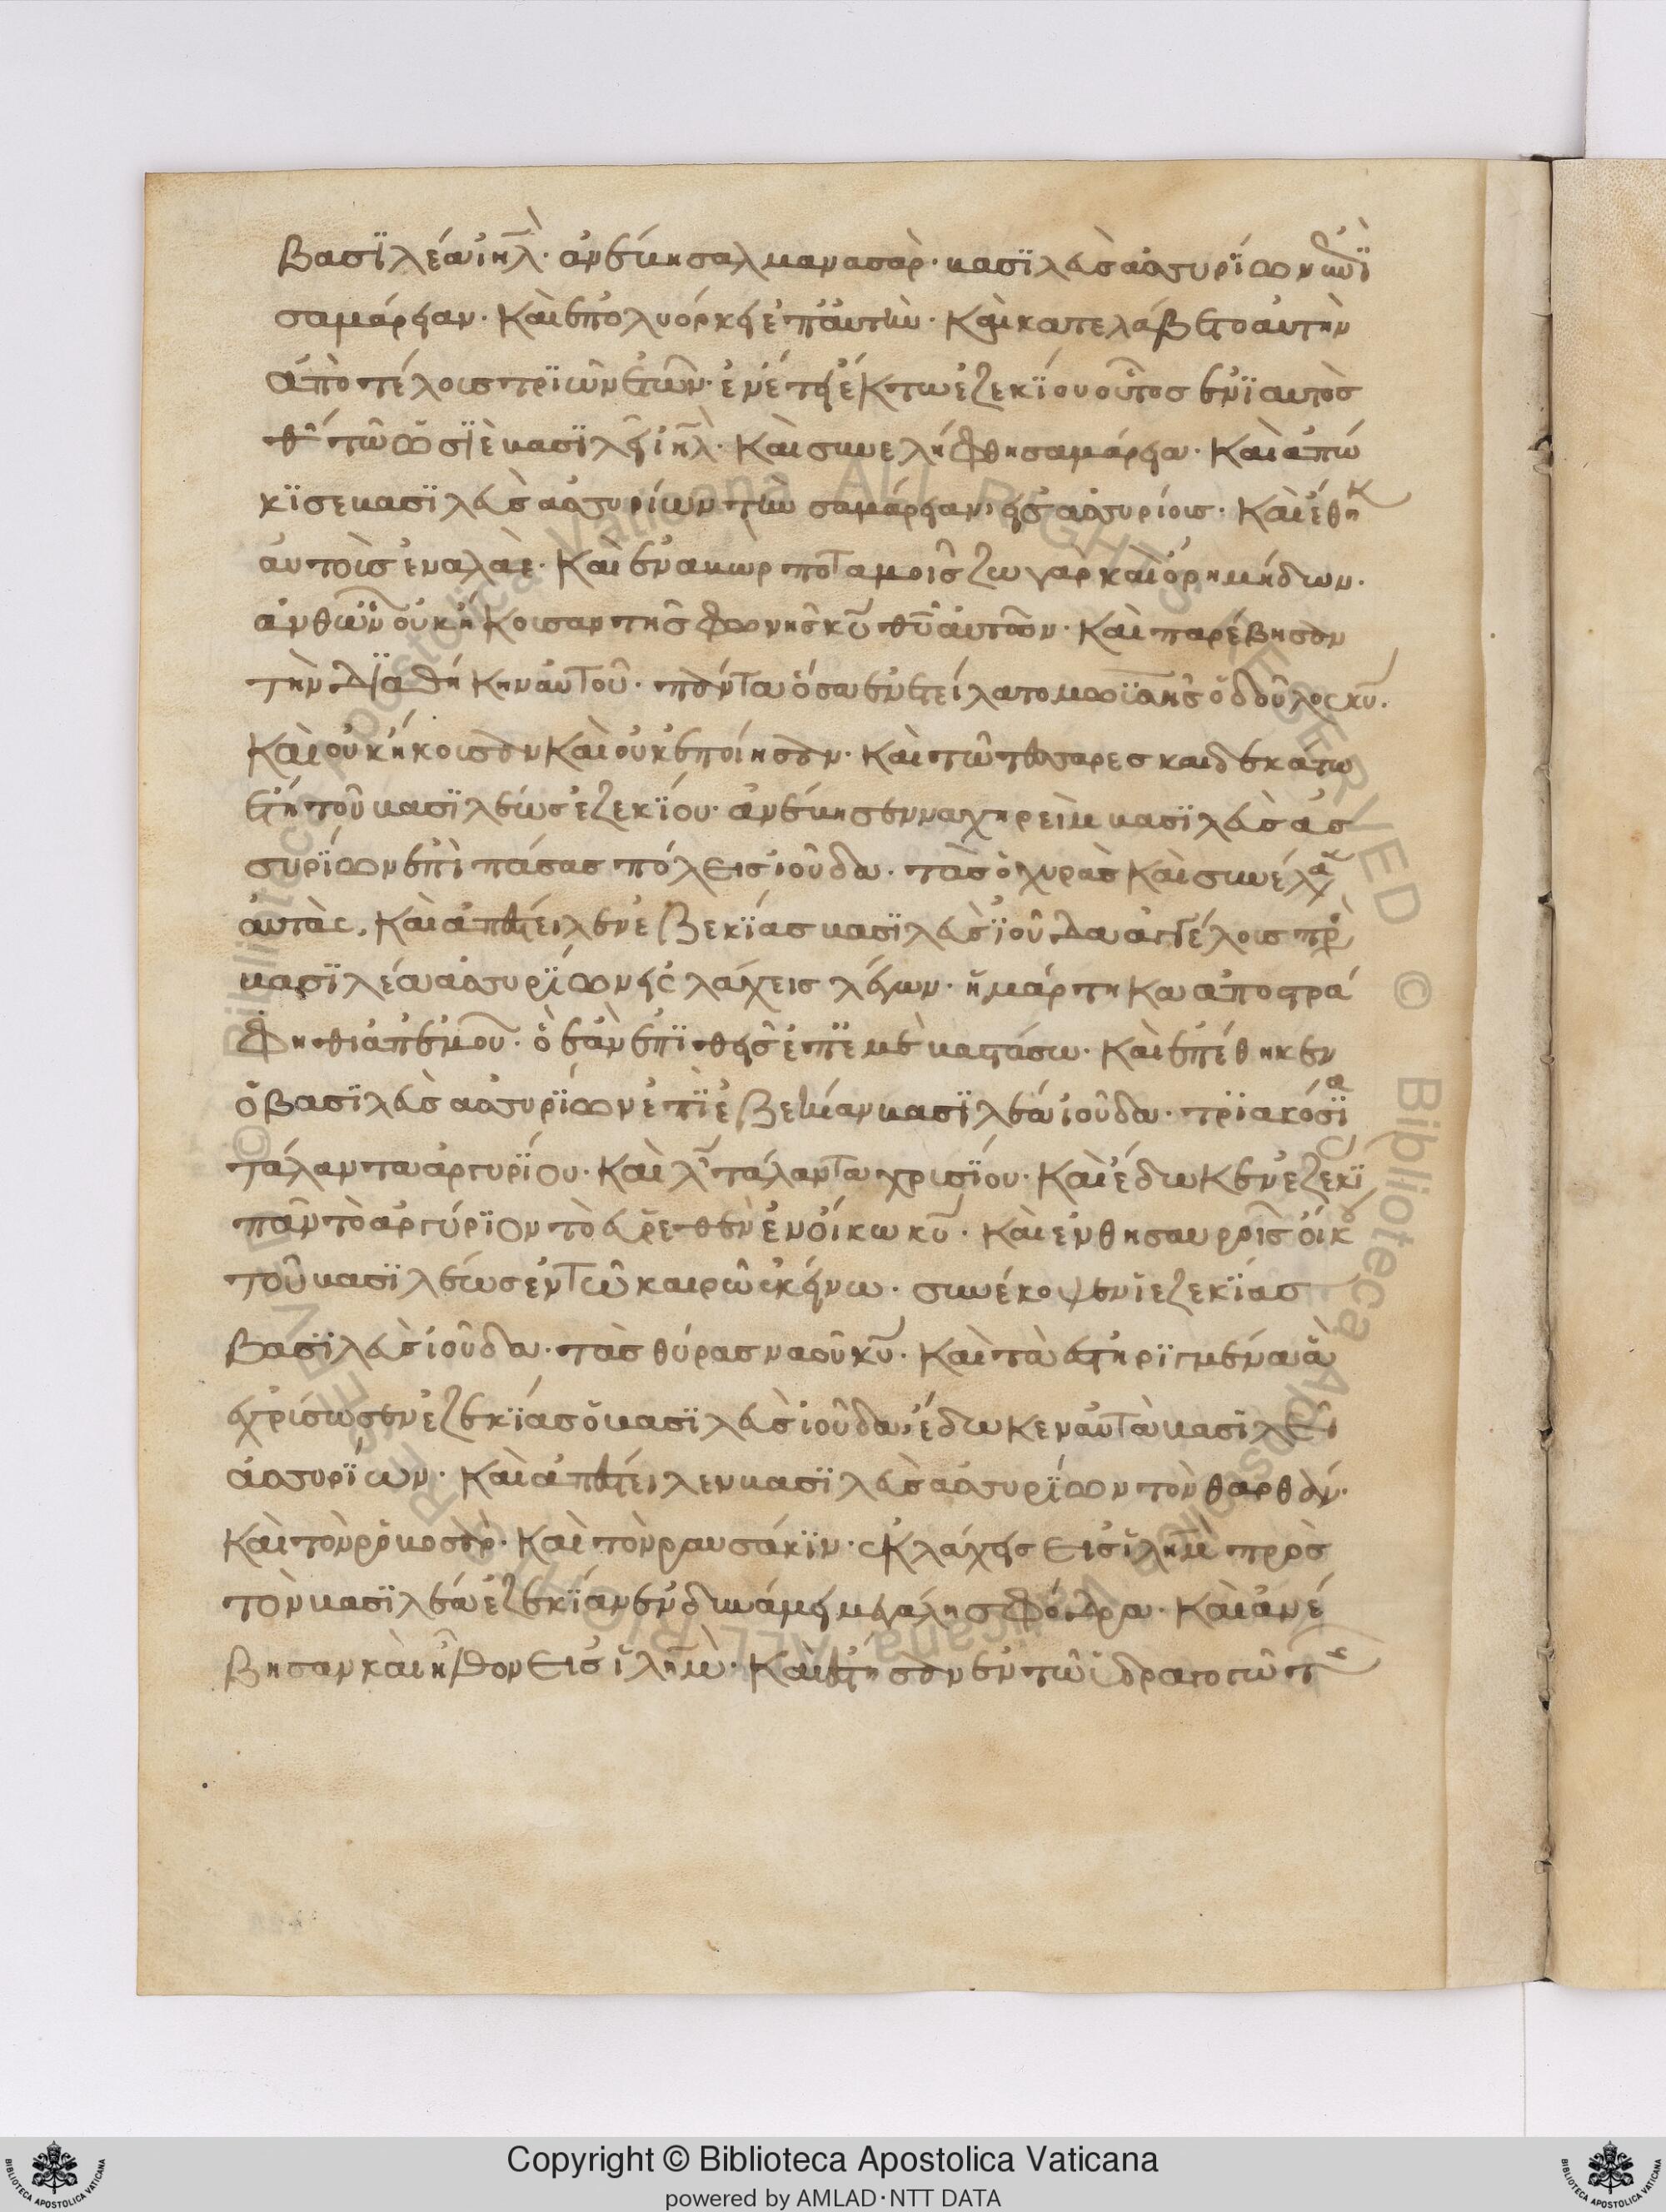 βασϊλέα ἰηλ̅· ἀνέβη σαλμανασὰρ· βασϊλεὺς ἀσσυρίων ἐπῒ
σαμάρειαν· καὶ ἐπολυόρκει ἐπ' αὐτὴν· καὶ κατελάβετο αὐτὴν
ἀπὸ τέλους τρϊῶν ἐτῶν· ἐν ἔτει ἕκτω ἐζεκΐου οὗτος ἐνϊαυτὸς
θ̅ τῶ ὡσϊὲ βασϊλεῖ ἰηλ̅· καὶ συνελήφθη σαμάρεια· καὶ ἀπώ
κϊσε βασϊλεὺς ἀσσυρίων τὴν σαμάρειαν εἰς ἀσσυρίους· καὶ ἔθηκ
αὐτοὺς ἐν αλαὲ· καὶ ἐν ακωρ ποταμοῖς ζωγὰρ καὶ ὄρη μήδων·
ἀνθ' ὧν οὐκ ἤκουσαν τῆς φωνῆς κ̅υ̅ θ̅υ̅ αὐτῶν· καὶ παρέβησαν
τὴν δϊαθήκην αὐτοῦ· πάντα ὅσα ἐνετείλατο μωϋσῆς ὁ δοῦλος κ̅υ̅·
καὶ οὐκ ἤκουσαν καὶ οὐκ ἐποίησαν· καὶ τῶ τέσσαρες καιδεκάτω
ἔτη τοῦ βασϊλέως ἐζεκΐου· ἀνέβη σενναχηρεὶμ βασϊλεὺς ἀσ
συρΐων ἐπὶ πάσας πόλεις ἰοῦδα· τὰς ὀχυρὰς καὶ συνέλα
αὐτὰς, καὶ ἀπέστειλεν ἐζεκΐας βασϊλεὺς ἰοῦδα ἀγγέλους πρ
βασϊλέα ἀσσυρΐων εἰς λάχεις λέγων· ἡμάρτηκα ἀποστρά
φηθι ἀπ' ἐμοῦ· ὃ ἐὰν ἐπϊθεῖς ἐπ' ἐμὲ βαστάσω· καὶ ἐπέθηκεν
ὁ βασϊλεὺς ἀσσυρΐων ἐπῒ ἐζεκίαν βασϊλέα ἰοῦδα· τρϊακόσϊα
τάλαντα ἀργυρΐου· καὶ λ̅ τάλαντα χρισΐου· καὶ ἔδωκεν ἐζεκΐ
πᾶν τὸ ἀργύρϊον τὸ εὑρεθὲν ἐν οἴκω κ̅υ̅· καὶ ἐν θησαυροῖς οἴκου
τοῦ βασϊλέως ἐν τῶ καιρῶ ἐκείνω· συνέκοψεν ἰεζεκΐας
βασϊλεὺς ἰοῦδα· τὰς θύρας ναοῦ κ̅υ̅· καὶ τὰ ἐστηρϊγμένα ἃ
ἐχρίσωσεν ἐζεκϊας ὁ βασϊλεὺς ἰοῦδα, ἔδωκεν αὐτὰ βασϊλεῖ
ἀσσυρΐων· καὶ ἀπέστειλεν βασϊλεὺς ἀσσυρΐων τὸν θαρθὰν·
καὶ τὸν ῥοβοσὰρ· καὶ τὸν ραυσάκϊν· ἐκ λάχεις εἰς ἰ̈λημ̅ πρὸς
τὸν βασϊλέα ἐζεκΐαν ἐν δυνάμει μεγάλη σφόδρα· καὶ ἀνέ
βησαν καὶ ἦλθον εἰς ἰ̈λημ̅· καὶ ἔστησαν ἐν τῶ ὑδραγογῶ τῆς